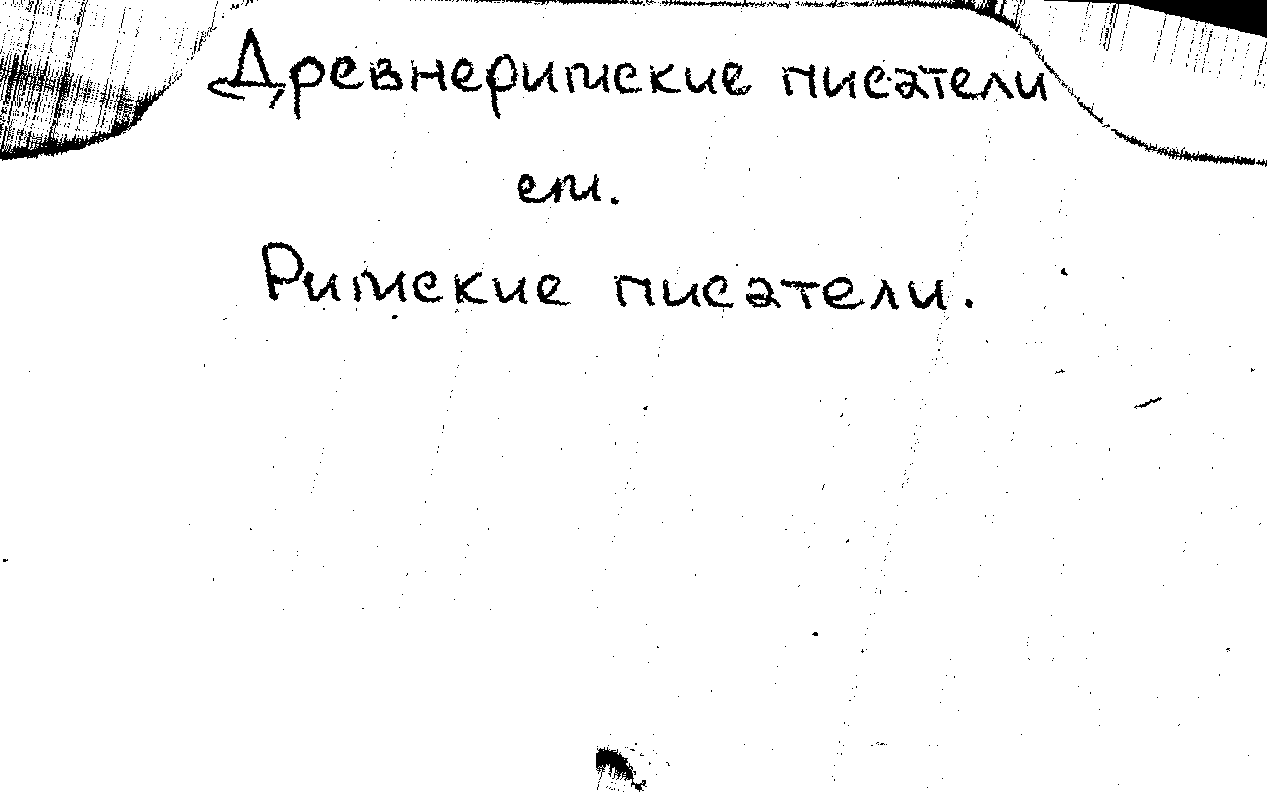 Древнеримские писатели
см.
Римские писатели.